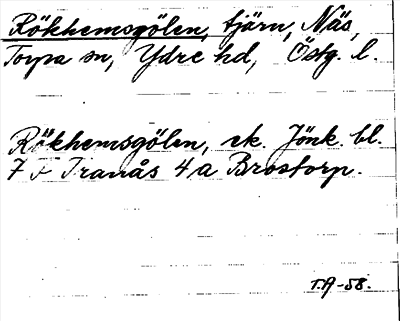 Rökhemsgölen, tjärn, Näs,
Torpa sn, Ydre hd, Östg. l.
Rökhemsgölen, ek. Jönk. bl.
7 F Tranås 4 a Brostorp.
T.A-58.